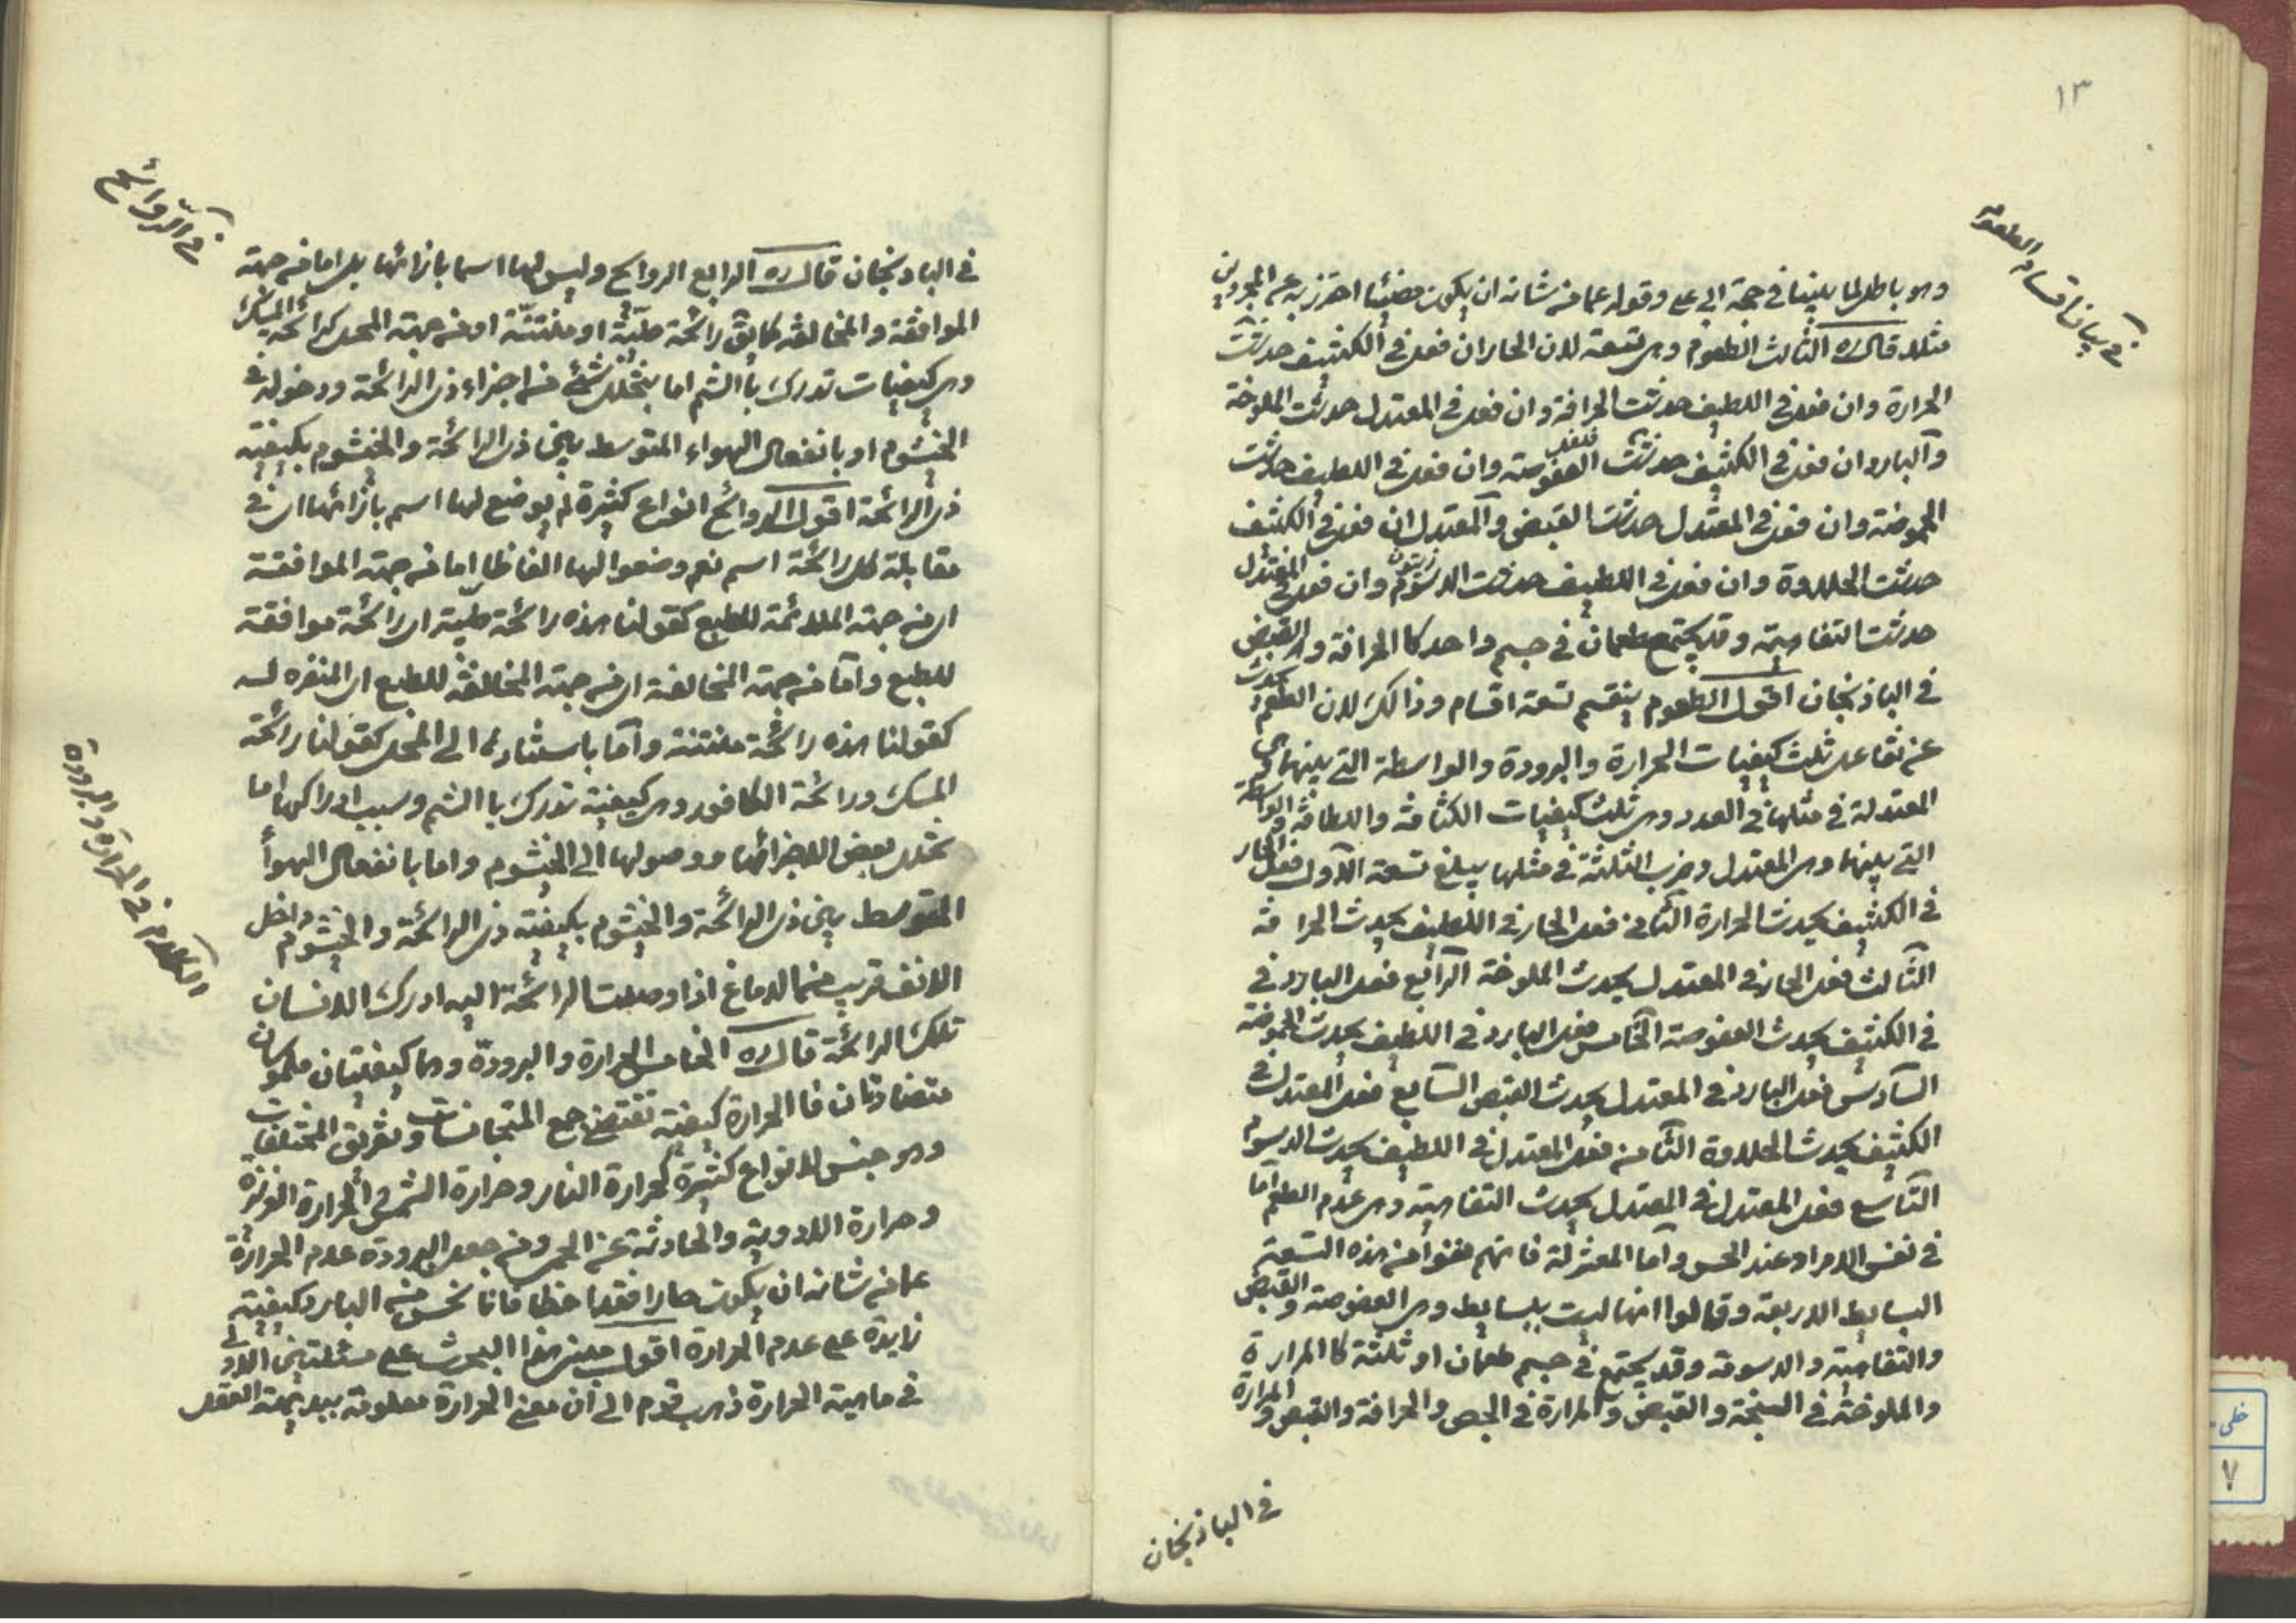 ١٣
في بيان اقسام الطعوم
وهو باطل لما بينا في حجة ابي علي وقوله عما من شانه ان يكون مضيئا احترز به عن المجردين
مثلا قال ره الثالث الطعوم وهي تسعة لان الحار ان فعل في الكثيف حدثت
المرارة وان فعل في اللطيف حدثت الحرافة وان فعل في المعتدل حدثت الملوحة
والبارد ان فعل في الكثيف حدثت العفوصة وان فعل في اللطيف حدثت
الحموضة وان فعل في المعتدل حدثت القبض والمعتدل ان فعل في الكثيف
حدثت الحلاوة وان فعل في اللطيف حدثت الدسومة وان فعل في المعتدل
حدثت التفاهة وقد يجتمع طعمان في جسم واحد كالحرافة والقبض
في الباذنجان اقول الطعوم ينقسم تسعة اقسام وذالك لان الطعم يحدث
عن تفاعل ثلث كيفيات الحرارة والبرودة والواسطة التي بينهما وهي
المعتدلة في مثلها في العدد وهي ثلث كيفيات الكثافة واللطافة والواسطة
التي بينهما وهي المعتدل وضرب الثلثة في مثلها يبلغ تسعة الاول فعل الحار
في الكثيف يحدث المرارة الثاني فعل الحار في اللطيف يحدث الحرافة
الثالث فعل الحار في المعتدل يحدث الملوحة الرابع فعل البارد في
في الكثيف يحدث العفوصة الخامس فعل البارد في اللطيف يحدث الحموضة
السادس فعل البارد في المعتدل يحدث القبض السابع فعل المعتدل في
الكثيف يحدث الحلاوة الثامن فعل المعتدل في اللطيف يحدث الدسومة
التاسع فعل المعتدل في المعتدل يحدث التفاهية وهي عدم الطعم اما
في نفس الامر او عند الحس واما المعتزلة فانهم نفوا من هذه التسعة
البسايط الاربعة وقالوا انها ليست ببسايط وهي العفوصة والقبض
والتفاهية والدسومة وقد يجتمع في جسم طعمان او ثلثة كالمرارة
والملوحة في السبخة والقبض والمرارة في الحصص والحرافة والقبض والمرارة
في الباذنجان
في الروائح
في الباذنجان قال ره الرابع الروايح وليس لها اسما بازائها بل اما من جهة
الموافقة والمخالفة كما يق رائحة طيبة او منتنة او من جهة المحل كرائحة المسك
وهي كيفيات تدرك بالشم اما بتخلل شئ من اجزاء ذي الرائحة ودخوله في
الخيشوم او بانفعال الهواء المتوسط بين ذي الرائحة والخيشوم بكيفية
ذي الرائحة اقول الروائح انواع كثيرة لم يوضع لها اسم بازائها اي في
مقابلة كل رائحة اسم نعم وضعوا لها الفاظا اما من جهة الموافقة
اي من جهة الملائمة للطبع كقولنا هذه رائحة طيبة اي رائحة موافقة
للطبع واما من جهة المخالفة اي من جهة المخالفة للطبع اي المنفره له
كقولنا هذه رائحة منتنة واما باسنادها الى المحل كقولنا رائحة
المسك ورائحة الكافور وهي كيفية تدرك بالشم وسبب ادراكها اما
تحلل بعض الاجزائها ووصولها الى الخيشوم واما بانفعال الهوأ
المتوسط بين ذي الرائحة والخيشوم بكيفية ذي الرائحة والخيشوم داخل
الانف قريب من الدماغ اذا وصلت الرائحة اليه ادرك الانسان
تلك الرائحة قال ره الخامس الحرارة والبرودة وهما كيفيتان ملموسان
متضادتان فالحرارة كيفية تقتضي جمع المتجانسات وتفريق المختلفات
وهو جنس لانواع كثيرة كحرارة النار وحرارة الشمس والحرارة الغريزة
وحرارة الادوية والحادثة عن الحمى ومن جعل البرودة عدم الحرارة
عما من شانه ان يكون حارا فقد اخطا فانا نحس من البارد كيفية
زايدة على عدم الحرارة اقول هذا البحث على مسئلتين الاولى
في ماهية الحرارة ذهب قوم الى ان معنى الحرارة معلومة ببديهة العقل
الكلام في الحرارة والبرودة
خطی
٧